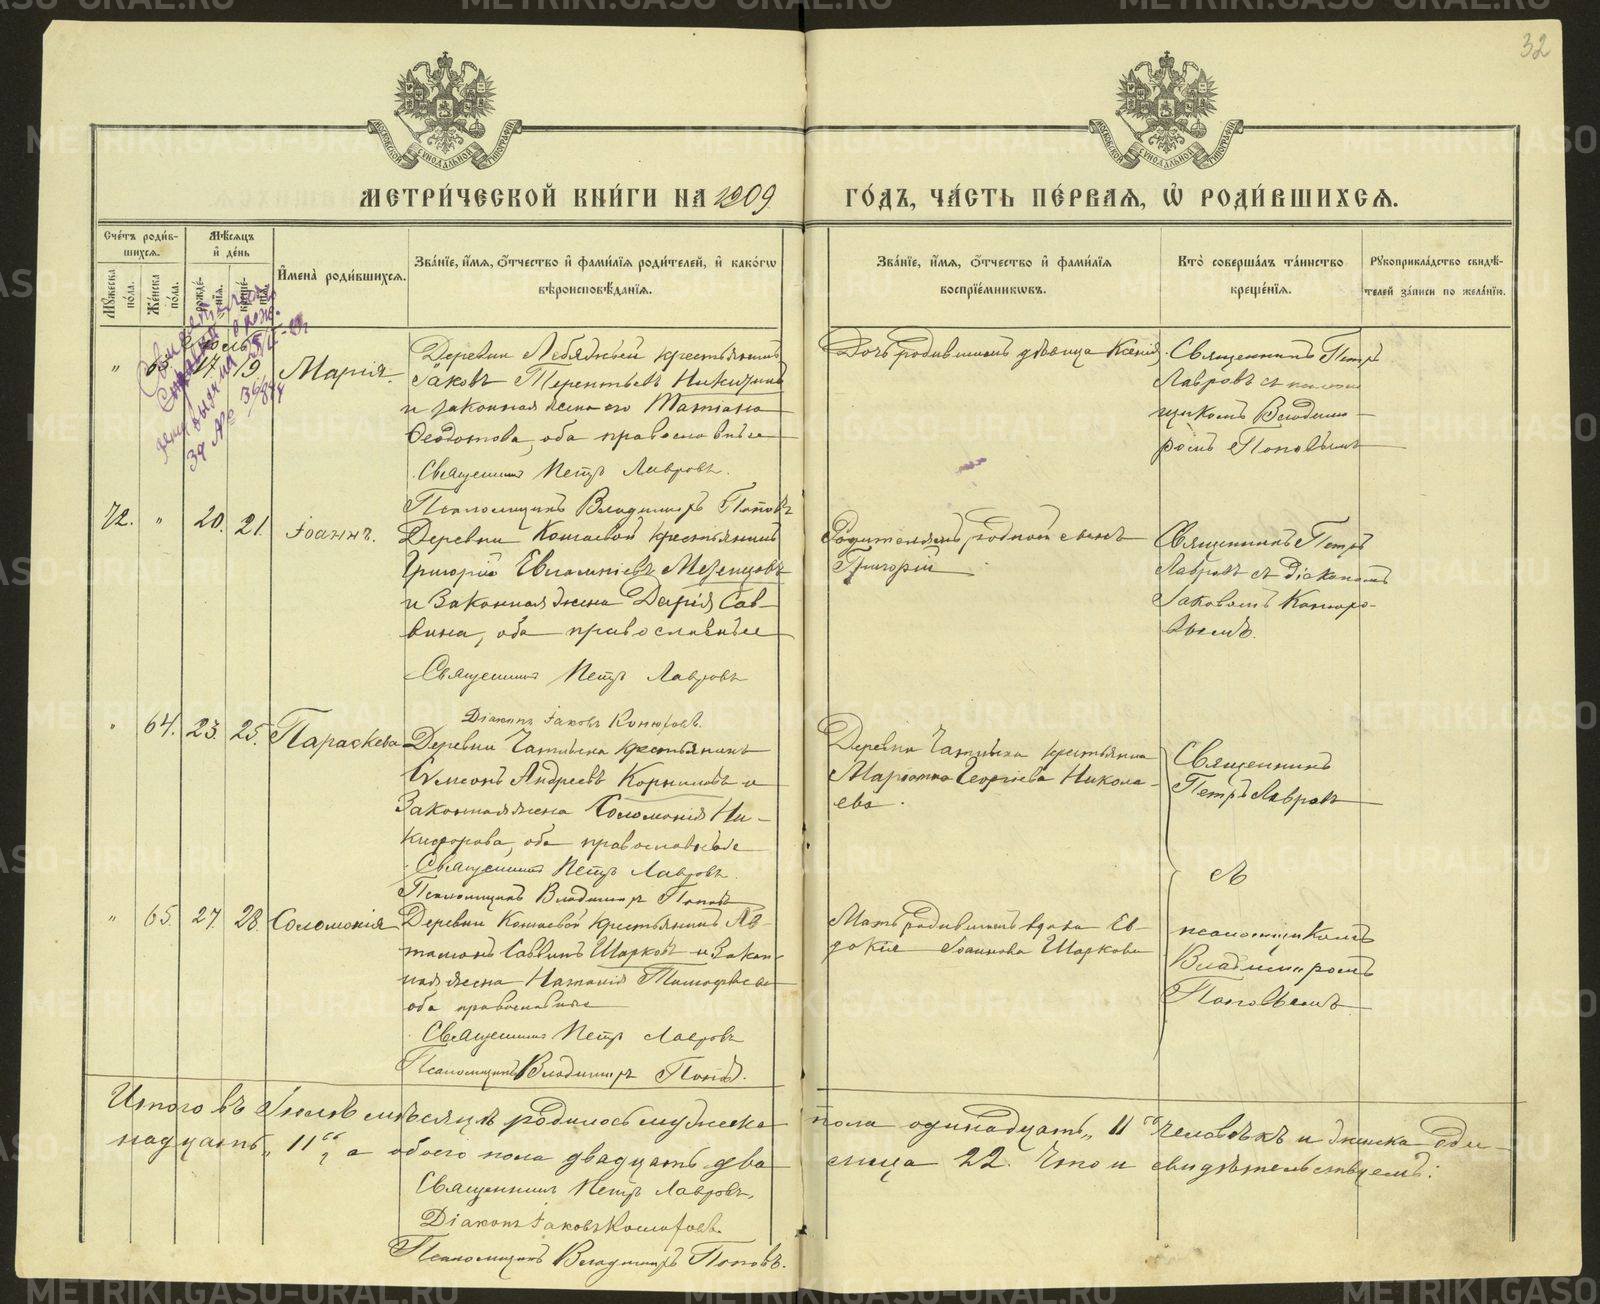 32
МОСКОВСКОЙ СѴНОДАЛЬНОЙ ТИПОГРАФІИ
МОСКОВСКОЙ СѴНОДАЛЬНОЙ ТИПОГРАФІИ
МЕТРИ́ЧЕСКОЙ КНИ́ГИ НА 1909
ГО́ДЪ, ЧА́СТЬ ПЕ́РВАЯ, Ѡ҆ РОДИ́ВШИХСЯ.
Сче́тъ роди́в-
шихся.
Мꙋ́жеска по́ла.
Же́нска по́ла.
Мѣ́сяцъ
и҆ де́нь
рожде́-
нїя.
креще́-
нїя.
И҆мена̀ роди́вшихся.
Зва́нїе, и҆́мя, ѻ҆́тчество и҆ фами́лїя роди́телей, и҆ како́гѡ
вѣроисповѣ́данїя.
Зва́нїе, и҆́мя, ѻ҆́тчество и҆ фами́лїя
воспрїе́мниковъ.
Кто̀ соверша́лъ та́инство
креще́нїя.
Рꙋкоприкла́дство свидѣ́-
телей за́писи по жела́нїю.
" 63. 17 19. Марія.
Деревни Лебяжьей крестьянинъ
Іаковъ Терентьевъ Никитинъ
и законная жена его Татіана
Ѳеодотова, оба православные
Священникъ Петръ Лавровъ.
Псаломщикъ Владимиръ Поповъ
Дочь родившихъ дѣвица Ксенія
Священникъ Петръ
Лавровъ съ псалом
щикомъ Владими-
ромъ Поповымъ
72. " 20. 21. Іоаннъ.
Деревни Кошаевой крестьянинъ
Григорій Евлампіевъ Мезенцовъ
и законная жена Дарія Сав-
вина, оба православные
Священникъ Петръ Лавровъ
Діаконъ Іаковъ Конюровъ.
Родителямъ родной сынъ
Григорій
Священникъ Петръ
Лавровъ съ діакономъ
Іаковомъ Конюро-
вымъ.
" 64. 23. 25. Параскева
Деревни крестьянинъ
Сѵмеонъ Андреевъ Корниловъ и
Законная жена Соломонія Ни-
кифорова, оба православные
Священникъ Петръ Лавровъ.
Псаломщикъ Владимиръ Поповъ
Деревни крестьянка
Маріамна Георгіева Никола-
ева.
Священникъ
Петръ Лавровъ
съ
псаломщикомъ
Владимиромъ
Поповымъ
" 65. 27. 28. Соломонія
Деревни Кошаевой крестьянинъ Ав-
тамонъ Саввинъ Шарковъ и закон-
ная жена Наталія Тимофѣева
оба православные
Священникъ Петръ Лавровъ
Псаломщикъ Владимиръ Поповъ.
Мать родившихъ вдова Ев-
докія Іоаннова Шаркова
Итого въ Іюлѣ мѣсяцѣ родилось мужеска пола одинадцать „11“ человѣкъ и женска оди-
надцать „11“, а обоего пола двадцать два лица 22. Что и свидѣтельствуемъ:
Священникъ Петръ Лавровъ,
Діаконъ Іаковъ Конюровъ.
Псаломщикъ Владимиръ Поповъ.
METRIKI.GASO-URAL.RU